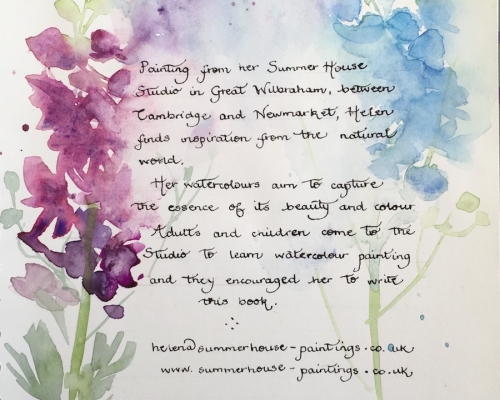 Painting from her Summer House
Studio in Great Wilbraham, between
Cambridge and Newmarket, Helen
finds inspiration from the natural
world.
Her watercolours aim to capture
the essence of its beauty and colour
Adults and children come to the
Studio to learn watercolour painting
and they encouraged her to write
this book.
helen@summerhouse-paintings.co.uk
www.summerhouse-paintings.co.uk